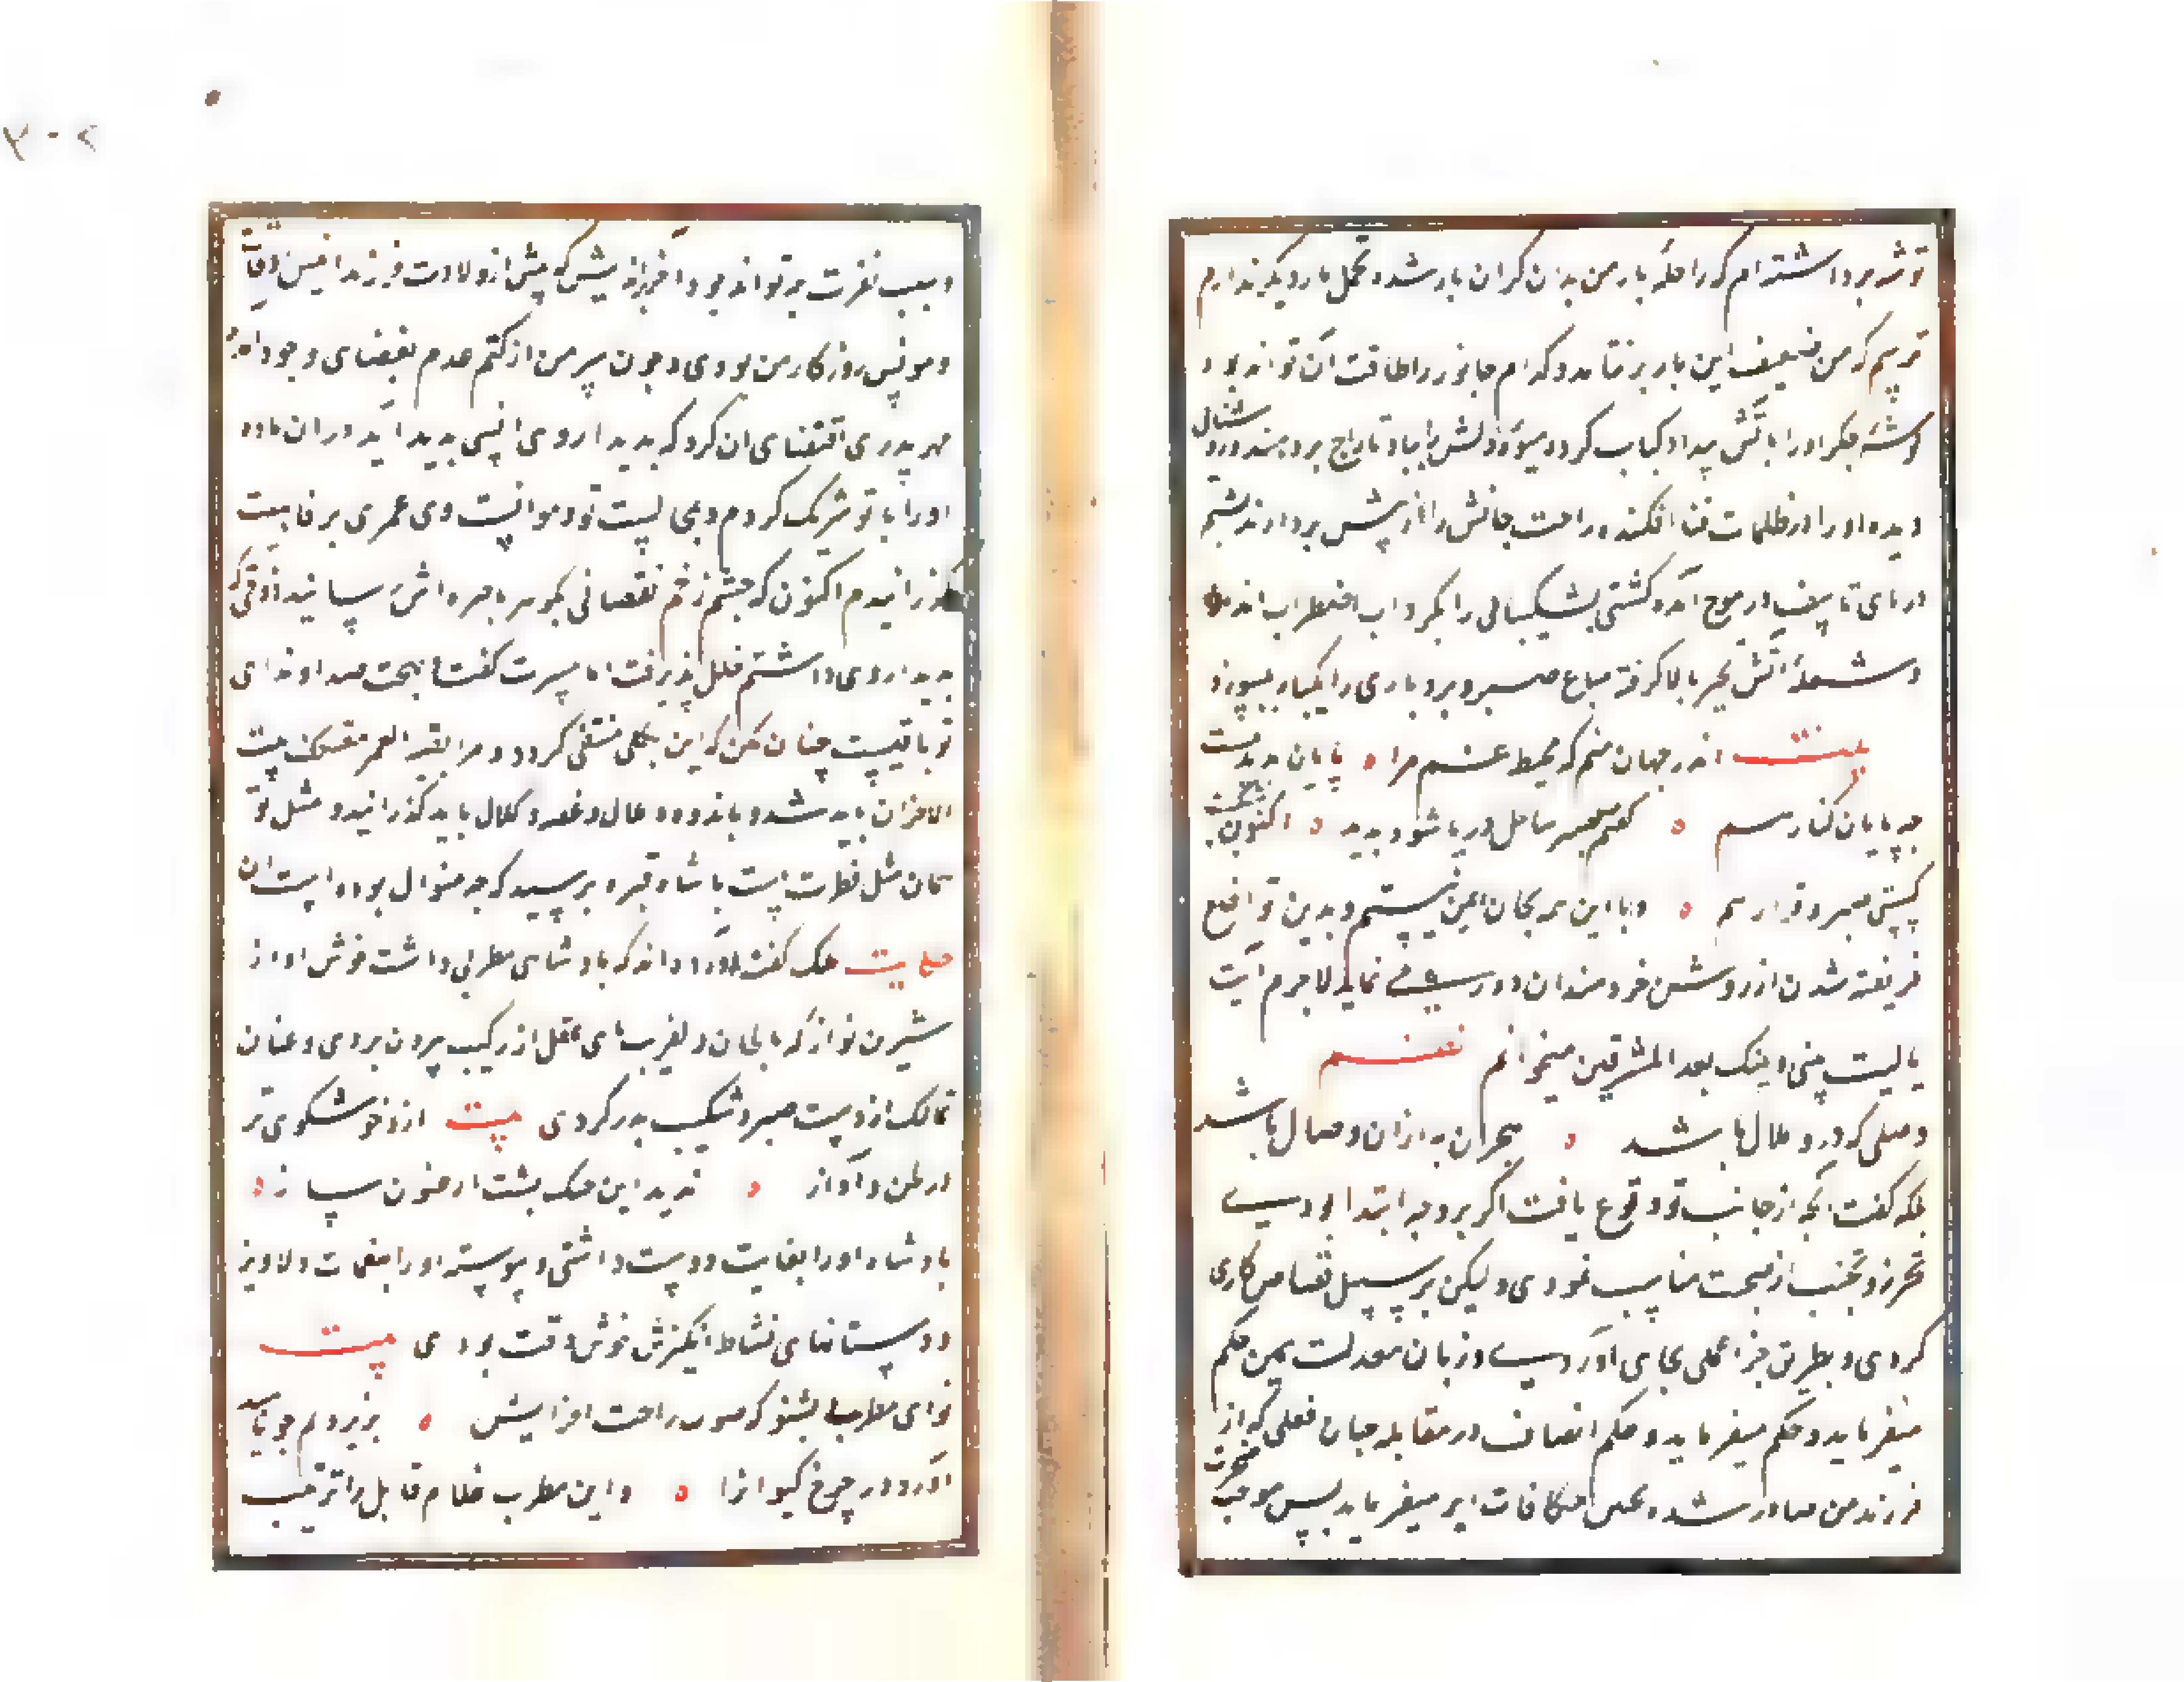 توشه برداشته‌ام که راحله بار من بدان کران بار شده و تحمل بار دیکر ندارم
ترسم که من ضعیف این بار برنتابد و کدام جانور را طاقت آن تواند بود
کوشهٔ جکر او را باتش بیداد کباب کرده میوهٔ دلش را بباد تاراج بردهند و
دیده او را در ظلمات فنا افکنده راحت جانش را از پیش بردارند
دریای تاسف در موج آمده کشتی شکیبائی را بکرداب اضطراب اندازد
و شعلهٔ آتش تحیر بالا کرفته متاع صبر و بردباری را یکبار بسوزد
بیت اندر جهان منم که محیط غم مرا ٥ پایان پدید نیست
چه پایان کنار هم ٥ کفتم بصبر ساحل دریا شود پدید ٥ اکنون
کشتی صبر و قرار هم ٥ و با این همه بجان ایمن نیستم و بدین تواضع
فریفته شدن از روش خردمندان دور مینماید لاجرم آیت
یا لیت بینی و بینک بعد المشرقین میخوانم نظم
وصلی که درو ملال باشد ٥ هجران به ازان وصال باشد
ملک کفت آنچه از جانب تو وقوع یافت اکر بر وجه ابتدا بودی
تحرز و تجنب از صحبت مناسب نمودی ولیکن بر سبیل قصاص کاری
کردی و بطریق جزا عملی بجای آوردی و زبان معدلت همین حکم
میفرماید و حکم میفرماید و حکم انصاف در مقابله چنان فعلی که از
فرزند من صادر شده همین مکافات امر میفرماید پس موجب نفرت
و سبب نفرت چه تواند بود و آخر براندیش که پیش از ولادت فرزند انیس اوقات
و مونس روزکار من بودی و چون پسر من از کتم عدم بفضای وجود آمد
مهر پدری اقتضای آن کرد که بدیدار وی انسی پدید آید دران ماده
او را با تو شریک کردم و بمجالست تو و موانست وی عمری برفاهیت
کذرانیدم اکنون که چشم زخم نقصانی بکوهر باصره‌اش رسانید ذوقی که
بدیدار وی داشتم خلل پذیرفت اما مسرت کفت و صحبت صدا و ندای
تو باقیست چنان مکن که این بکلی منتفی کردد و مرا بقیه العمر معتکف بیت
الاحزان باید شد و باندوه و ملال و غصه و کلال باید کذرانید و مثل تو
همان مثل مطرب است با شاه قبره پرسید که چه منوال بوده است آن
حکایت ملک کفت آورده‌اند که پادشاهی مطربی داشت خوش آواز
شیرین نواز که بالحان دلفریب پای عقل از رکیب بیرون بردی و عنان
تمالک از دست صبر و شکیب بدر کردی بیت ازو خوشکوی تر
در لحن و آواز ٥ ندید این چنک پشت ارغنون ساز ٥
پادشاه او را بغایت دوست داشتی و پیوسته او را بنغمات دلاویز
و دستانهای نشاط انکیزش خوش وقت بودی بیت
نوای مطرب بشنو که صوت راحت افزایش ٥
آورد در چرخ کیوانرا ٥ و این مطرب غلام قابل را تربیت